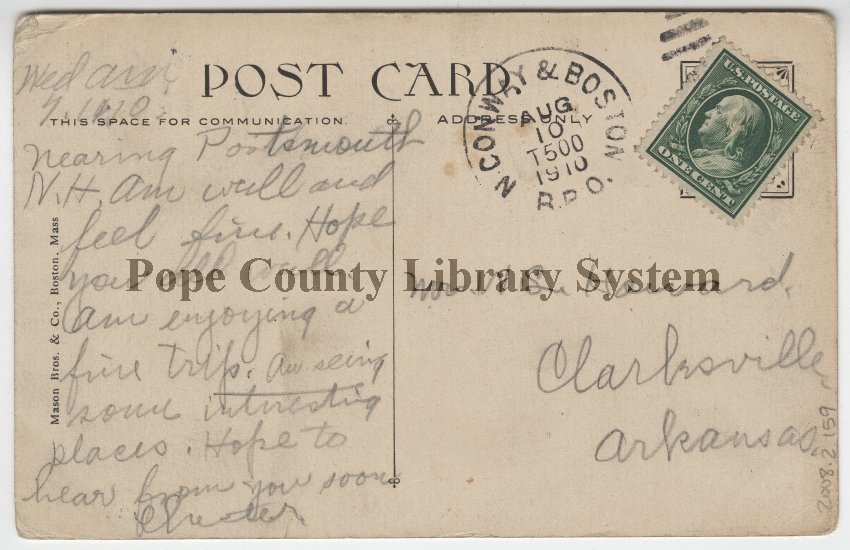 Wed am
POST CARD
THIS SPACE FOR COMMUNICATION.
ADDRESS ONLY
nearing Portsmouth
N.H. Am well and
feel fine. Hope
you all well
am enjoying a
fine trip. Am seing
some interesting
places. Hope to
hear from you soon
Chester
Mason Bros. & Co., Boston, Mass
N. CONWAY & BOSTON
AUG
10
T500
1910
R.P.O.
U.S. POSTAGE
ONE CENT
Howard.
Clarksville,
Arkansas,
2008.2.159
Pope County Library System